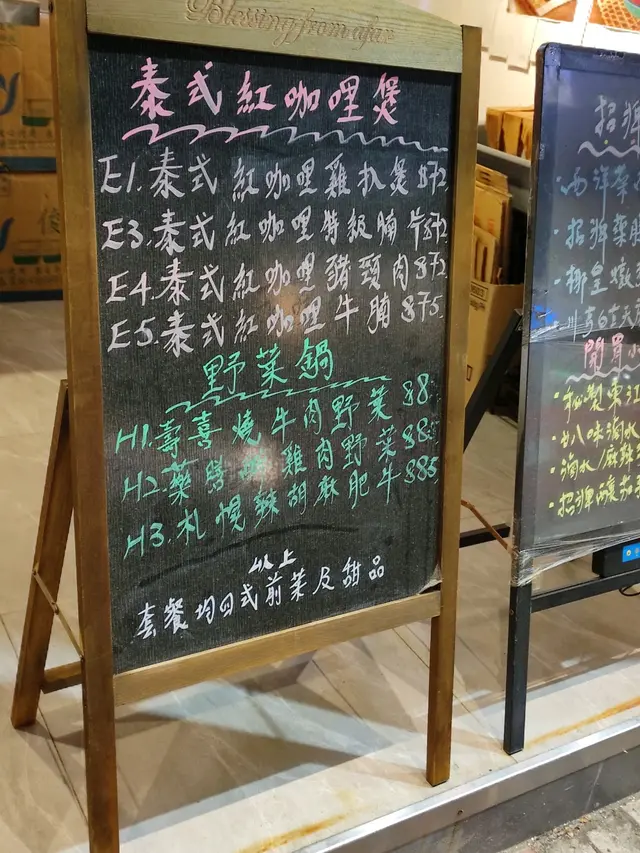 Blessing from afar
泰式紅咖哩煲
E1.泰式紅咖哩雞扒煲$72
E3.泰式紅咖哩特級腩片$72
E4.泰式紅咖哩豬頸肉$72
E5.泰式紅咖哩牛腩$75
野菜鍋
H1.壽喜燒牛肉野菜$8
H2.藥膳 雞肉野菜$85
H3.札幌辣胡麻肥牛$85
以上
套餐均 式前菜及甜品
招牌
·西洋菜
·招牌
·椰皇燉
開胃小
·秘製東江
·八味滷水
·滷水/麻辣
·招牌